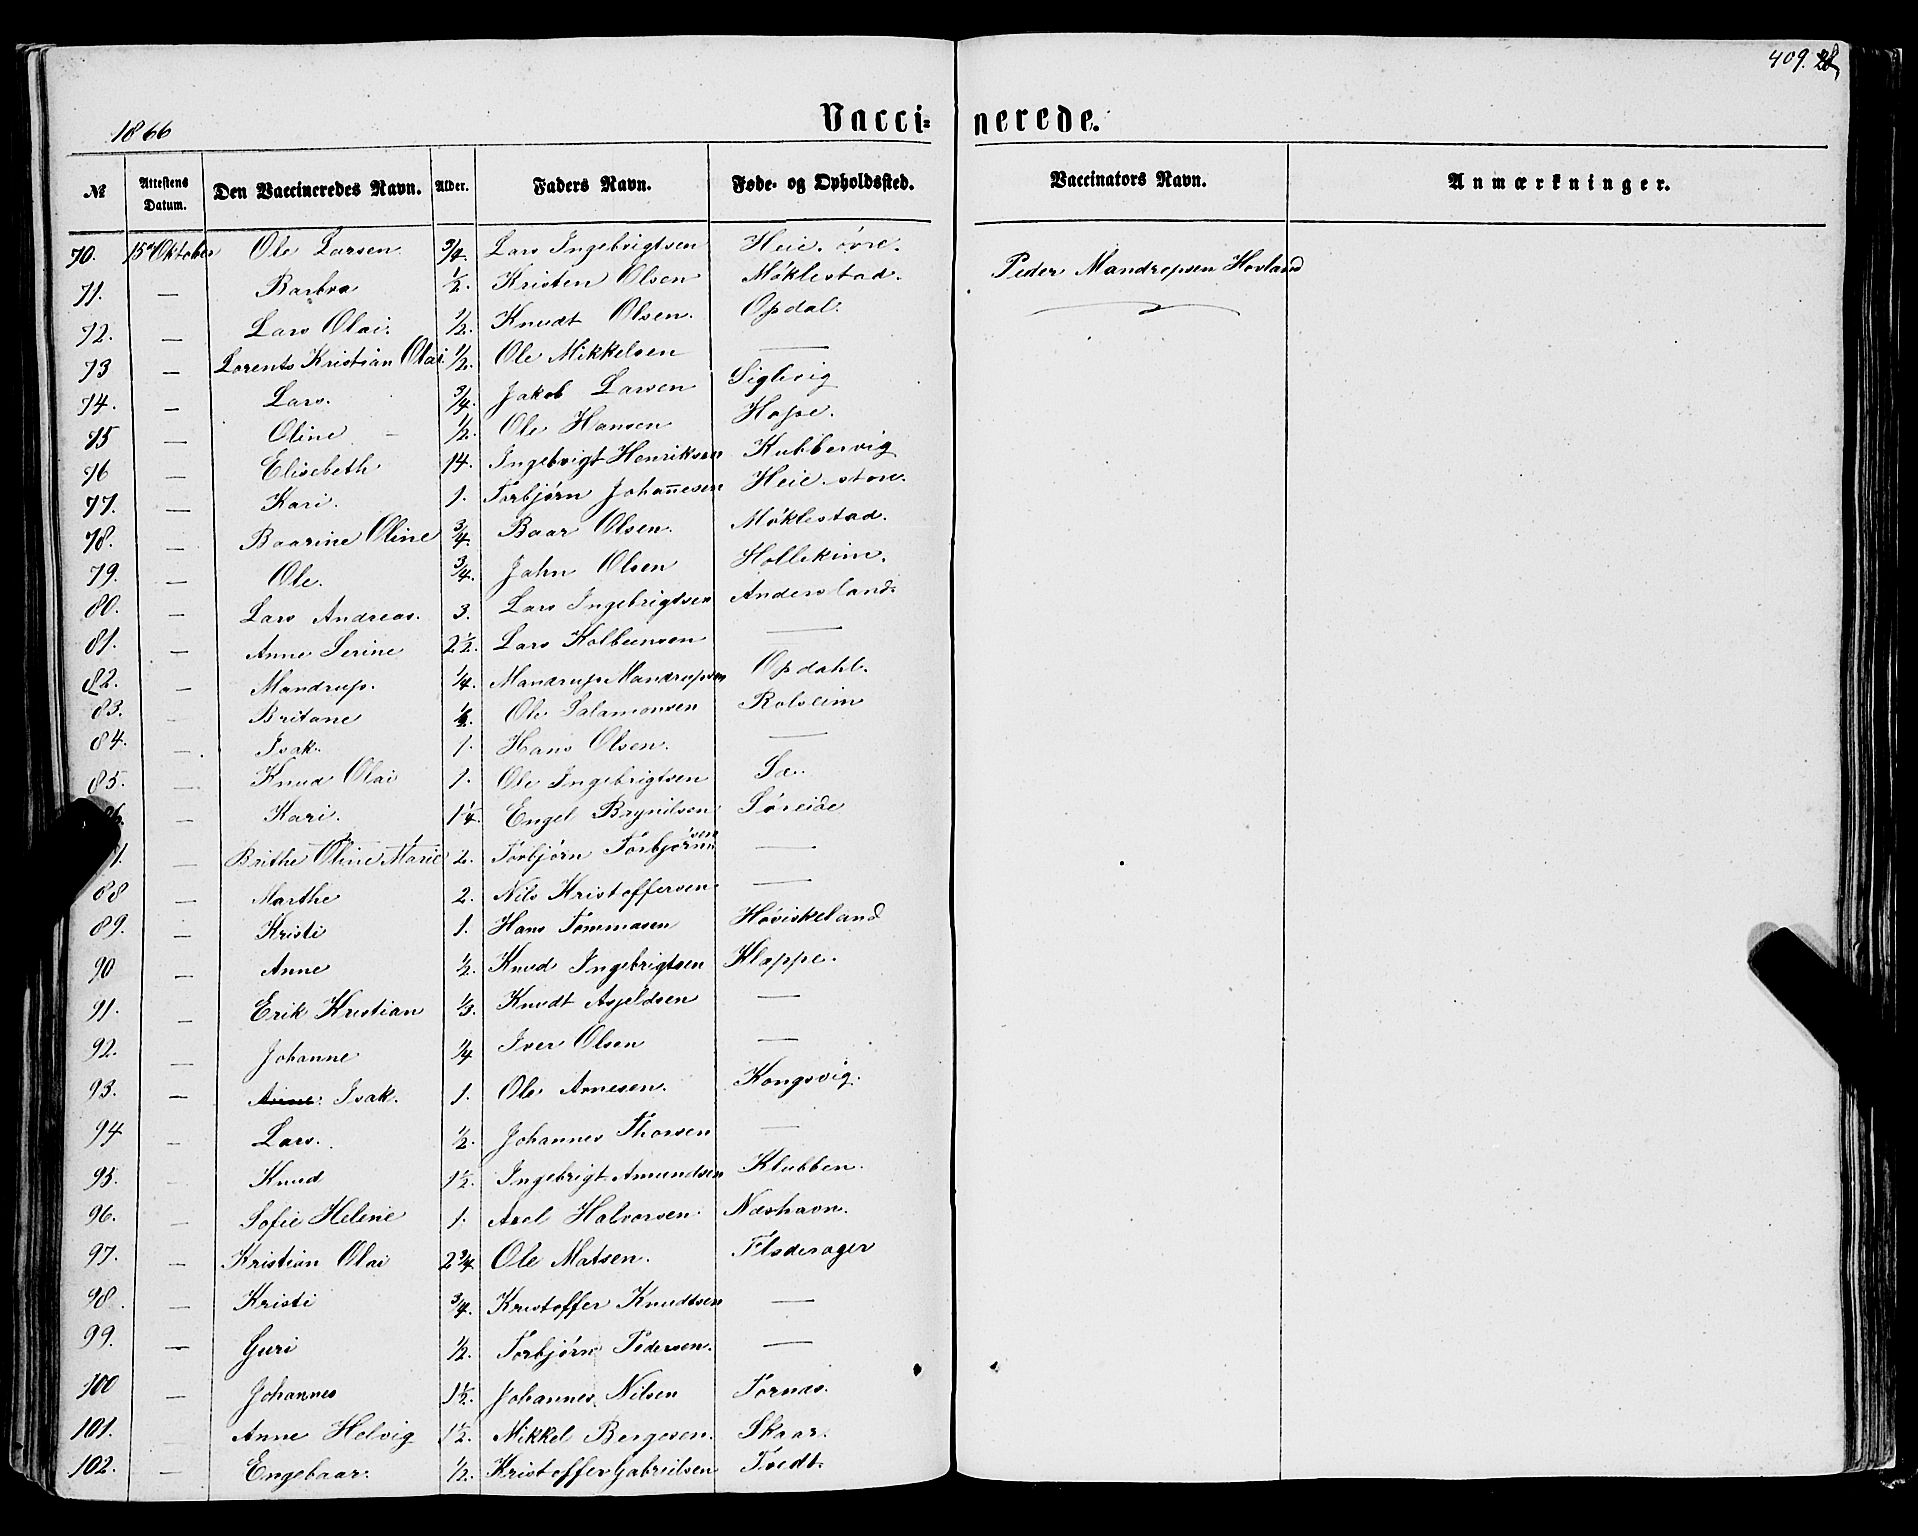 409.
1866
Vaccinerede.
№ Attestens Datum. Den Vaccineredes Navn. Alder. Faders Navn. Føde- og Opholdssted. Vaccinators Navn. Anmærkninger.
70. 15de Oktober Ole Larsen 3/4. Lars Ingebrigtsen Heie. øvre. Peder Mandrupsen Hovland
71. — Barbra 1/2. Kristen Olsen Møklestad.
72. — Lars Olai. 1/2. Knudt Olsen. Opdal.
73 — Lorents Kristian Olai 1/2. Ole Mikkelsen —
74. — Lars. 3/4. Jakob Larsen Siglevig
75 — Oline 1/2. Ole Hansen Hope.
76 — Elisebeth. 14. Ingebrigt Henriksen Kubbervig
77. — Kari. 1. Torbjørn Johannesen Heie store.
78. — Baarine Oline 3/4. Baar Olsen. Møklestad.
79. — Ole. 3/4. Jahn Olsen Hollekim.
80. — Lars Andreas. 3. Lars Ingebrigtsen Andersland.
81. — Anne Serine 2 1/2. Lars Kolbeensen —
82. — Mandrup. 1/4. Mandrup Mandrupsen Opdahl.
83. — Britane Ole Salamonsen Rolseim
84. — Isak. 1. Hans Olsen. —
85. — Knud Olai 1. Ole Ingebrigtsen Sæ.
86. — Kari. 1 1/4. Engel Brynilsen Søreide
— Brithe Oline Marie 2. Torbjørn Torbjørnsen —
88 — Marthe 2. Nils Kristoffersen —
89. — Kristi 1. Hans Tommasen Høviskeland
90 — Anne 1/2. Knud Ingebrigtsen Kloppe.
91. — Erik Kristian 1/3. Knudt Aspeldsen —
92. — Johanne 1/4 Iver Olsen —
93. — Anne. Isak. 1. Ole Arnesen. Kongsvig.
94 — Lars. 1/2. Johannes Thorsen —
95. — Knud 1 1/2. Ingebrigt Amundsen Klubben.
96. — Sofie Helene 1. Axel Halvorsen Næshavn.
97. — Kristian Olai 2 3/4. Ole Matsen. Fladerager
98. — Kristi 3/4. Kristoffer Knudtsen —
99. — Guri 1/2. Torbjørn Pedersen. —
100 — Johannes 1 1/2. Johannes Nilsen Tornæs.
101. — Anne Helvig 1 1/2. Mikkel Bergesen. Skaar.
102. — Engebaar. 1/2. Kristoffer Gabreilsen Tvedt.